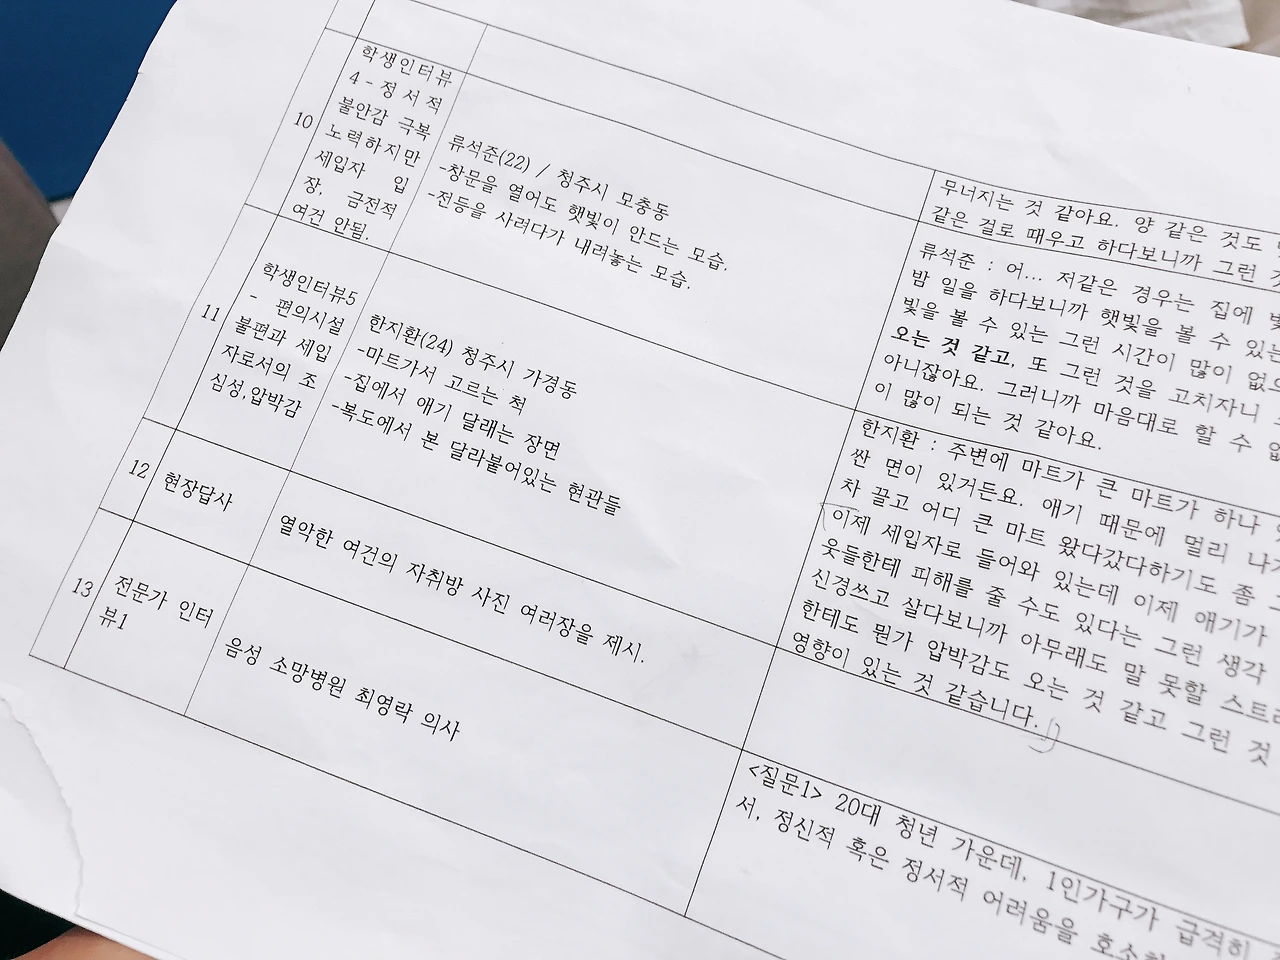 10
학생인터뷰
4 - 정서적
불안감 극복
노력하지만
세입자 입
장, 금전적
여건 안됨.
류석준(22) / 청주시 모충동
-창문을 열어도 햇빛이 안드는 모습.
-전등을 사려다가 내려놓는 모습.
무너지는 것 같아요. 양 같은 것도
같은 걸로 때우고 하다보니까 그런
류석준 : 어... 저같은 경우는 집에
밤 일을 하다보니까 햇빛을 볼 수 있는
빛을 볼 수 있는 그런 시간이 많이
오는 것 같고, 또 그런 것을 고치자니
아니잖아요. 그러니까 마음대로 할 수
이 많이 되는 것 같아요.
11
학생인터뷰5
- 편의시설
불편과 세입
자로서의 조
심성,압박감
한지환(24) 청주시 가경동
-마트가서 고르는 척
-집에서 애기 달래는 장면
-복도에서 본 달라붙어있는 현관들
한지환 : 주변에 마트가 큰 마트가 하나
싼 면이 있거든요. 애기 때문에 멀리
차 끌고 어디 큰 마트 왔다갔다하기도 좀
이제 세입자로 들어와 있는데 이제 애기가
웃들한테 피해를 줄 수도 있다는 그런 생각
신경쓰고 살다보니까 아무래도 말 못할
한테도 뭔가 압박감도 오는 것 같고 그런 것
영향이 있는 것 같습니다.
12
현장답사
열악한 여건의 자취방 사진 여러장을 제시.
13
전문가 인터
뷰1
음성 소망병원 최영락 의사
<질문1> 20대 청년 가운데, 1인가구가 급격히
서, 정신적 혹은 정서적 어려움을